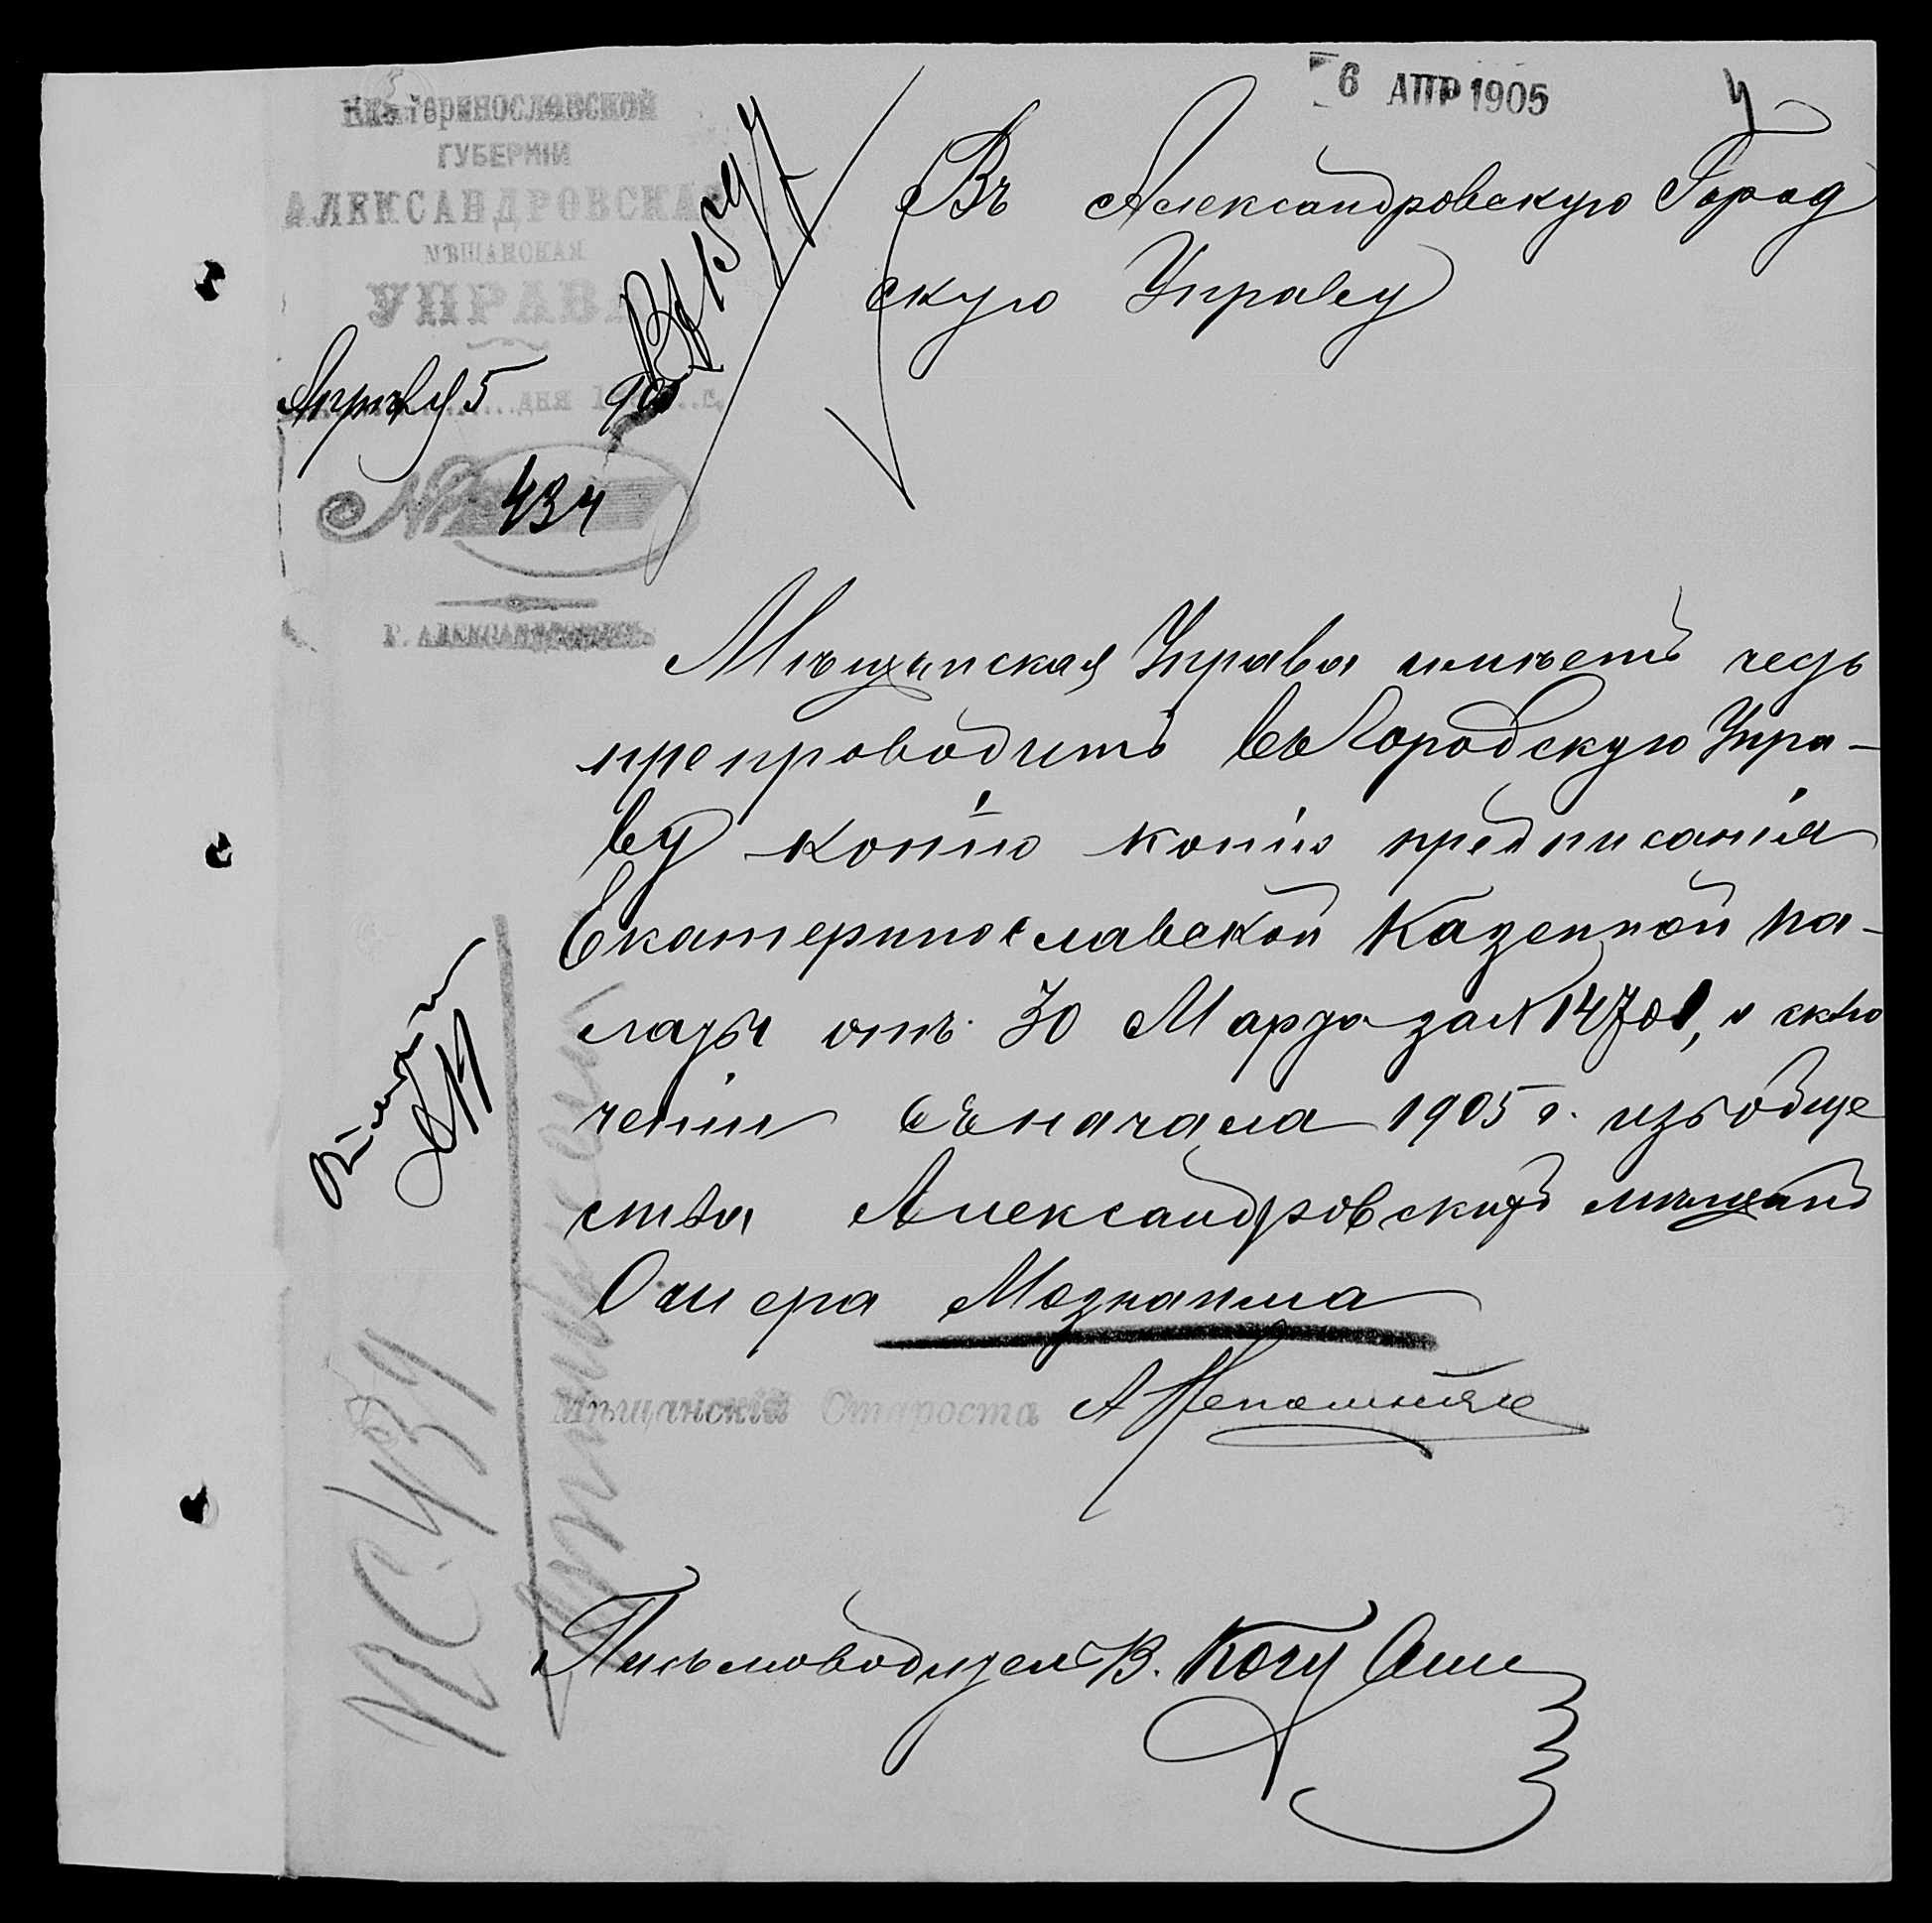 6 АПР 1905
4
Екатеринославской
ГУБЕРНІИ
АЛЕКСАНДРОВСКАЯ
МѢЩАНСКАЯ
УПРАВА
Апрѣля 5 дня 190 г.
№ 434
Г. АЛЕКСАНДРОВСКЪ
Въ Александровскую Город
скую Управу
Мѣщанская Управа имѣетъ честь
препроводить въ Городскую Упра-
ву копію копіи предписанія
Екатеринославской Казенной Па-
латы отъ 30 Марта за № 14701, о исклю
ченіи съ начала 1905 г. изъ обще
ства Александровскихъ мѣщанъ
Омера Мознаима
Мѣщанскій Староста А Непомнящ
Письмоводитель В.
439